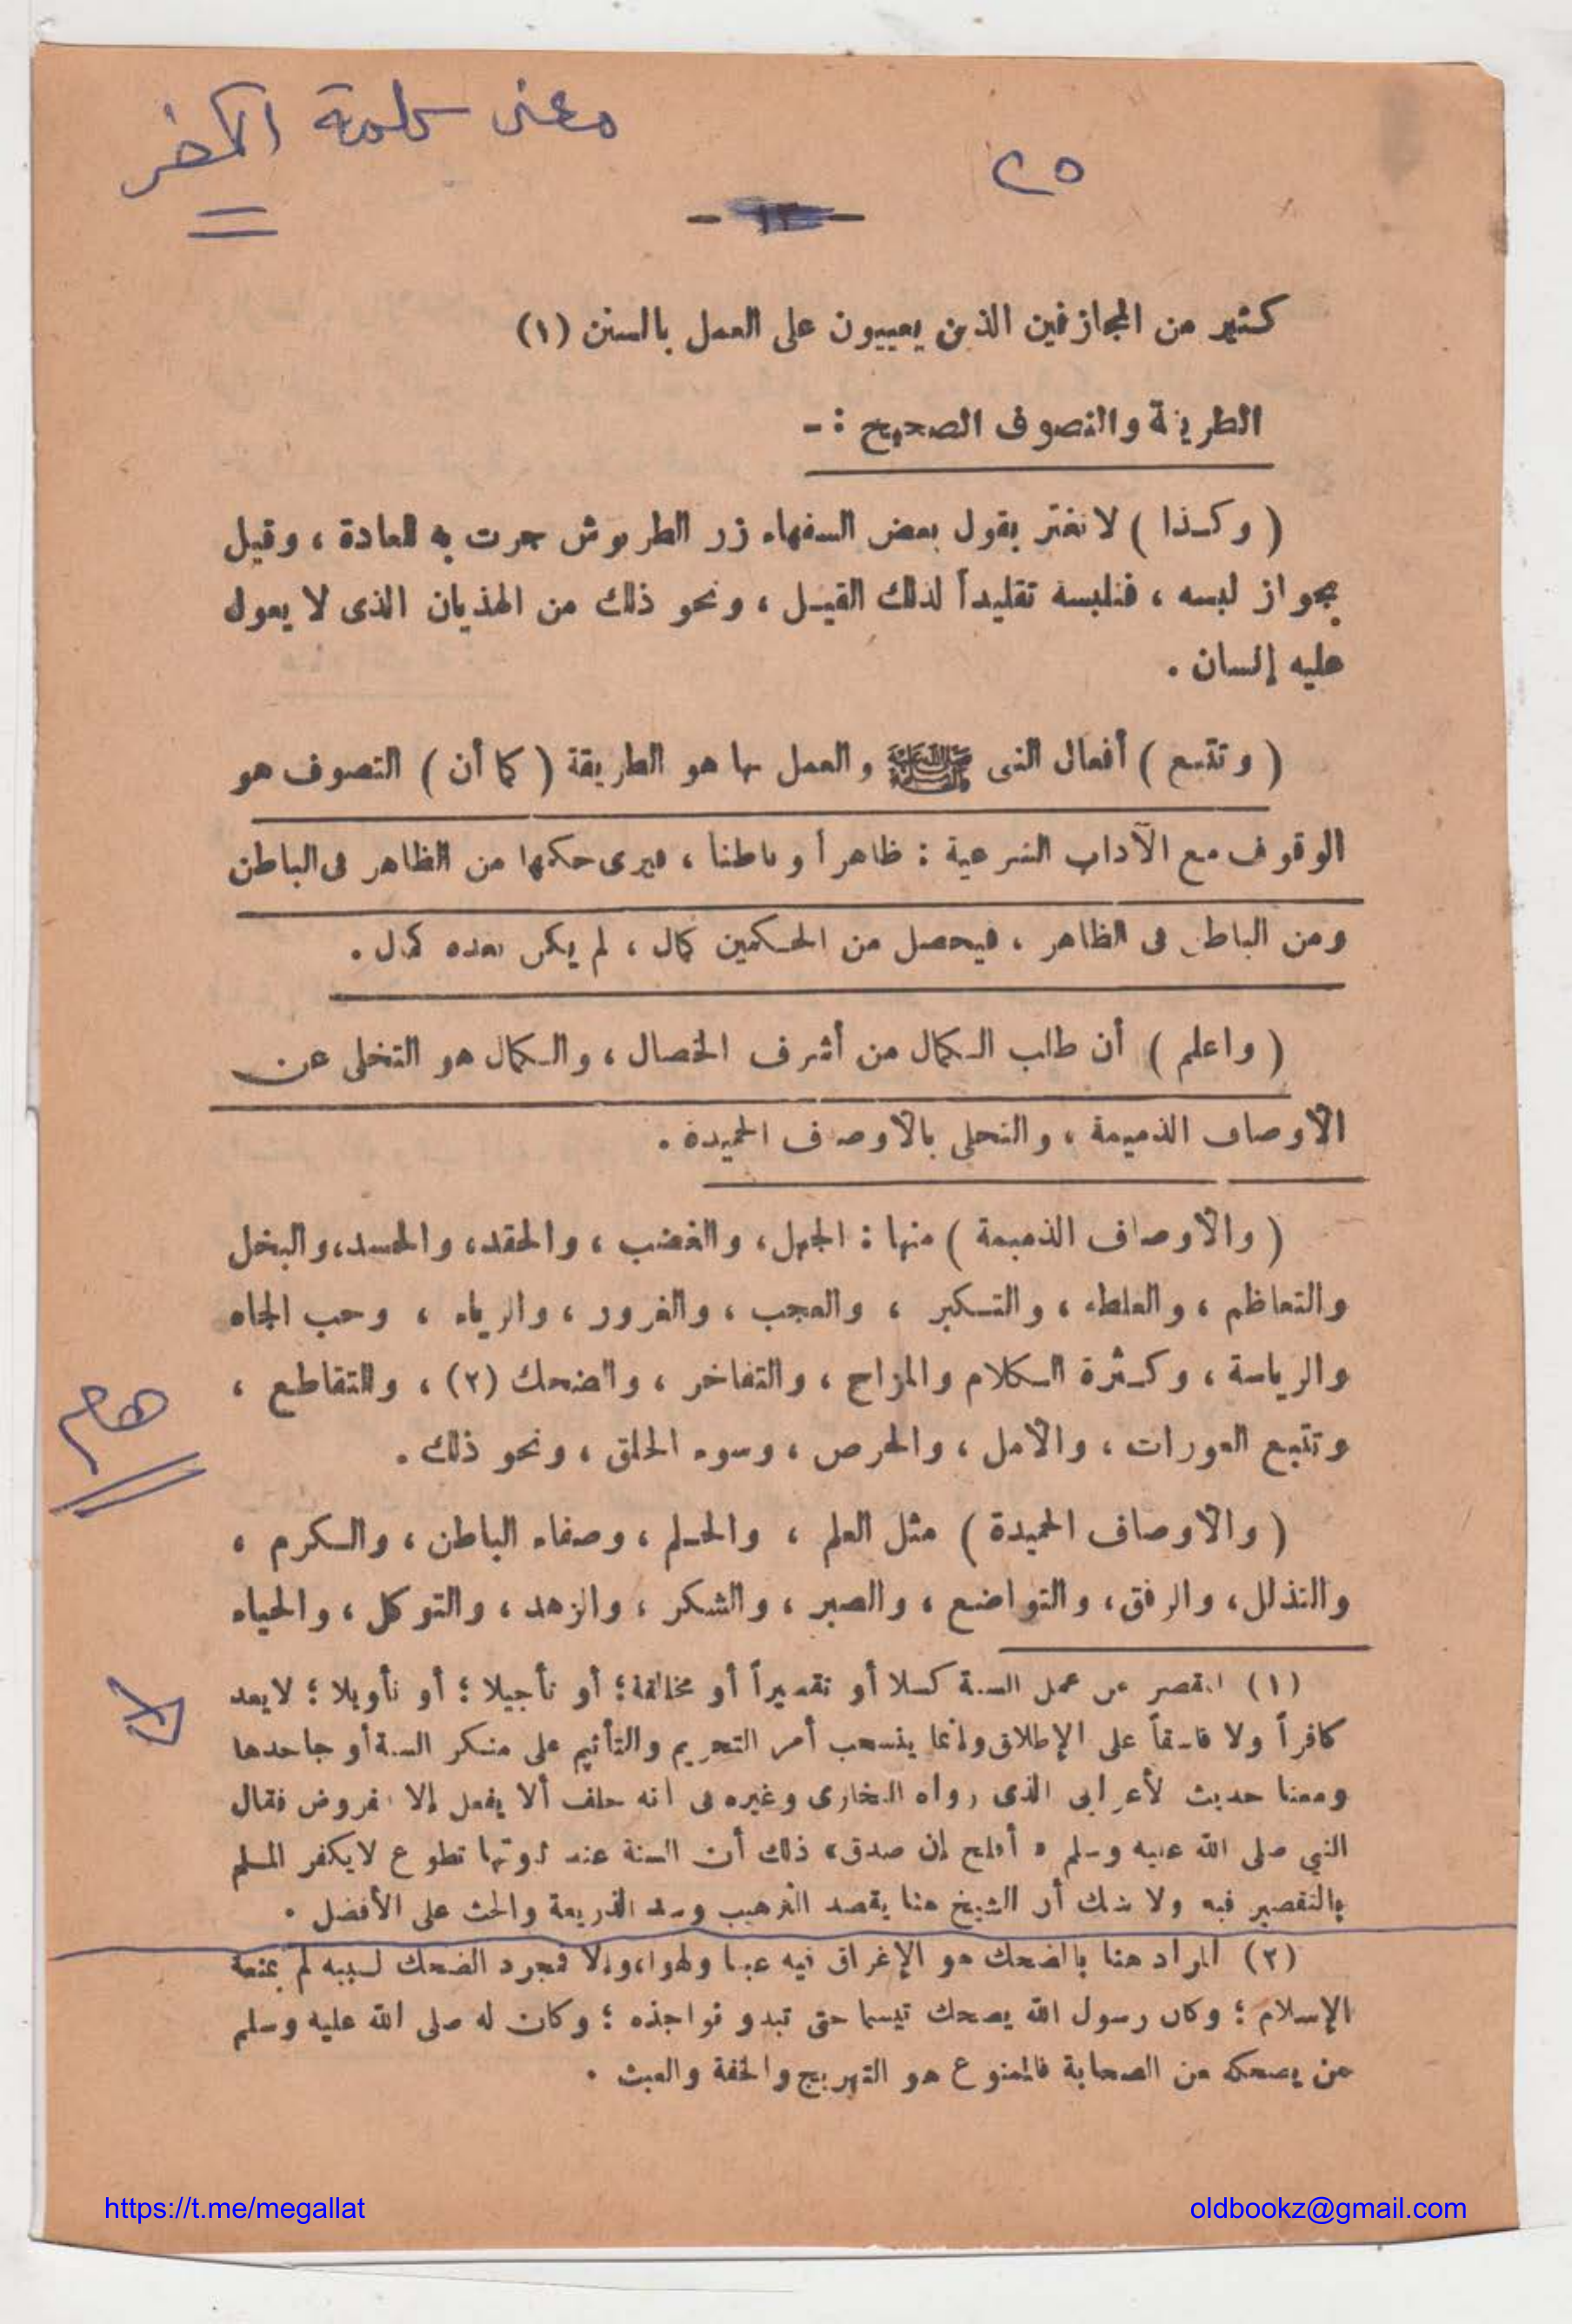 معنى كلمة الكفر
٢٥
- ١٣ -
كثير من المجازفين الذين يعيبون على العمل بالسنن (١)
الطريقة والتصوف الصحيح : -
( وكذا ) لا تغتر بقول بعض السفهاء زر الطربوش جرت به العادة ، وقيل
بجواز لبسه ، فنلبسه تقليداً لذلك القيل ، ونحو ذلك من الهذيان الذى لا يعول
عليه إنسان .
( وتتبع ) أفعال النبى ﷺ والعمل بها هو الطريقة ( كما أن ) التصوف هو
الوقوف مع الآداب الشرعية : ظاهراً وباطنا ، فيرى حكمها من الظاهر فى الباطن
ومن الباطن فى الظاهر ، فيحصل من الحكمين كمال ، لم يكن بعده كمال .
( واعلم ) أن طلب الكمال من أشرف الخصال ، والكمال هو التخلى عن
الأوصاف الذميمة ، والتحلى بالأوصاف الحميدة .
( والأوصاف الذميمة ) منها : الجهل، والغضب ، والحقد، والحسد، والبخل
والتعاظم ، والغلظة ، والتكبر ، والعجب ، والغرور ، والرياء ، وحب الجاه
والرياسة ، وكثرة الكلام والمزاح ، والتفاخر ، والضحك (٢) ، والتقاطع ،
وتتبع العورات ، والأمل ، والحرص ، وسوء الخلق ، ونحو ذلك .
هام
( والأوصاف الحميدة ) مثل العلم ، والحلم ، وصفاء الباطن ، والكرم ،
والتذلل، والرفق، والتواضع ، والصبر ، والشكر ، والزهد ، والتوكل ، والحياء
(١) المقصر عن عمل السنة كسلا أو تقصيراً أو مخالفة ؛ أو تأجيلا ؛ أو تأويلا ؛ لا يعد
كافراً ولا فاسقاً على الإطلاق وإنما ينسحب أمر التحريم والتأثيم على منكر السنة أو جاحدها
ومعنا حديث الأعرابى الذى رواه البخارى وغيره فى أنه حلف ألا يفعل إلا الفروض فقال
النبي صلى الله عليه وسلم « أفلح إن صدق » ذلك أن السنة عند ثبوتها تطوع لا يكفر المسلم
بالتقصير فيه ولا شك أن الشيخ هنا يقصد الترهيب وسد الذريعة والحث على الأفضل .
(٢) المراد هنا بالضحك هو الإغراق فيه عبثا ولهوا، وإلا فمجرد الضحك لسببه لم يمنعه
الإسلام ؛ وكان رسول الله يضحك تبسما حتى تبدو نواجذه ؛ وكان له صلى الله عليه وسلم
من يضحكه من الصحابة فالممنوع هو التهريج والخفة والعبث .
https://t.me/megallat
oldbookz@gmail.com